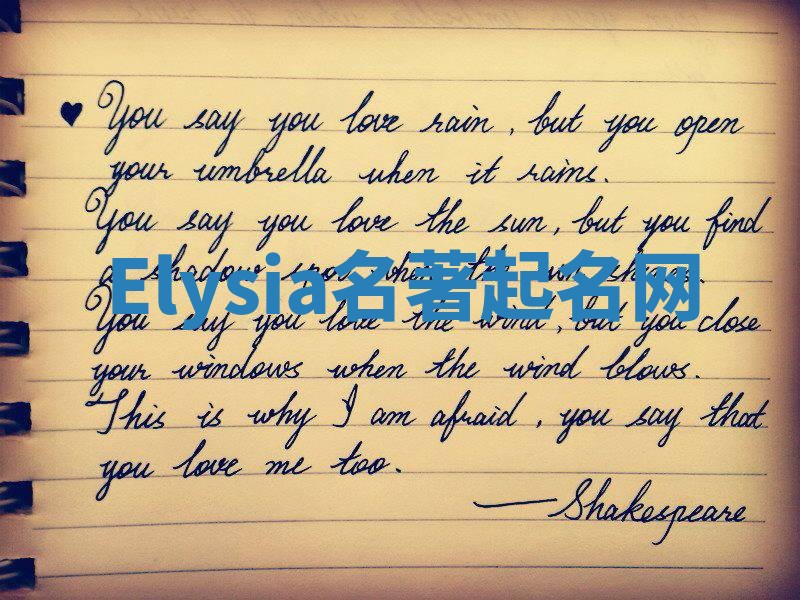 ♥ You say you love rain, but you open
your umbrella when it rains.
You say you love the sun, but you find
a shadow spot when the sun shines.
Elysia名著起名网
You say you love the wind, but you close
your windows when the wind blows.
This is why I am afraid, you say that
you love me too.
—Shakespeare